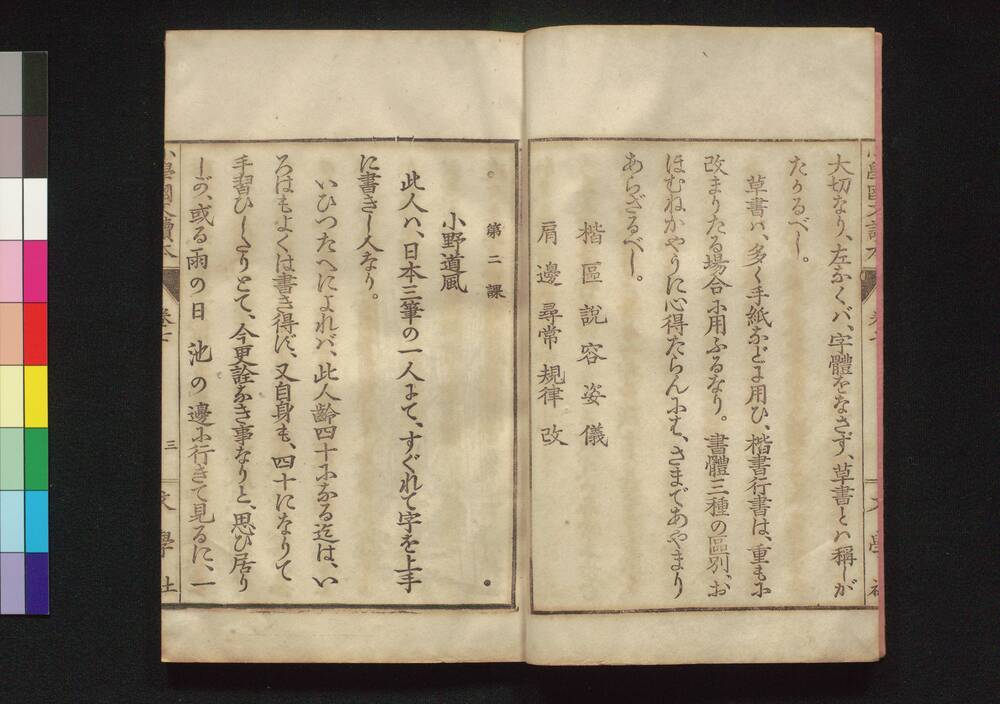 大切なり、左なくバ、字體をなさず、草書とハ稱しが
たかるべし。
草書ハ、多く手紙などに用ひ、楷書行書は、重もに
改まりたる場合に用ふるなり。書體三種の區別、お
ほむねかやうに心得たらんにも、さまであやまり
あらざるべし。
楷區說容姿儀
肩邊尋常規律改
第二課
小野道風
此人ハ、日本三筆の一人にて、すぐれて字を上手
に書きし人なり。
いひつたへによれバ、此人齡四十になる迄は、い
ろはもよくは書き得ず、又自身も、四十になりて
手習ひしたりとて、今更詮なき事なりと、思ひ居り
しが、或る雨の日 池の邊に行きて見るに、一
小學國文讀本
三
文學社